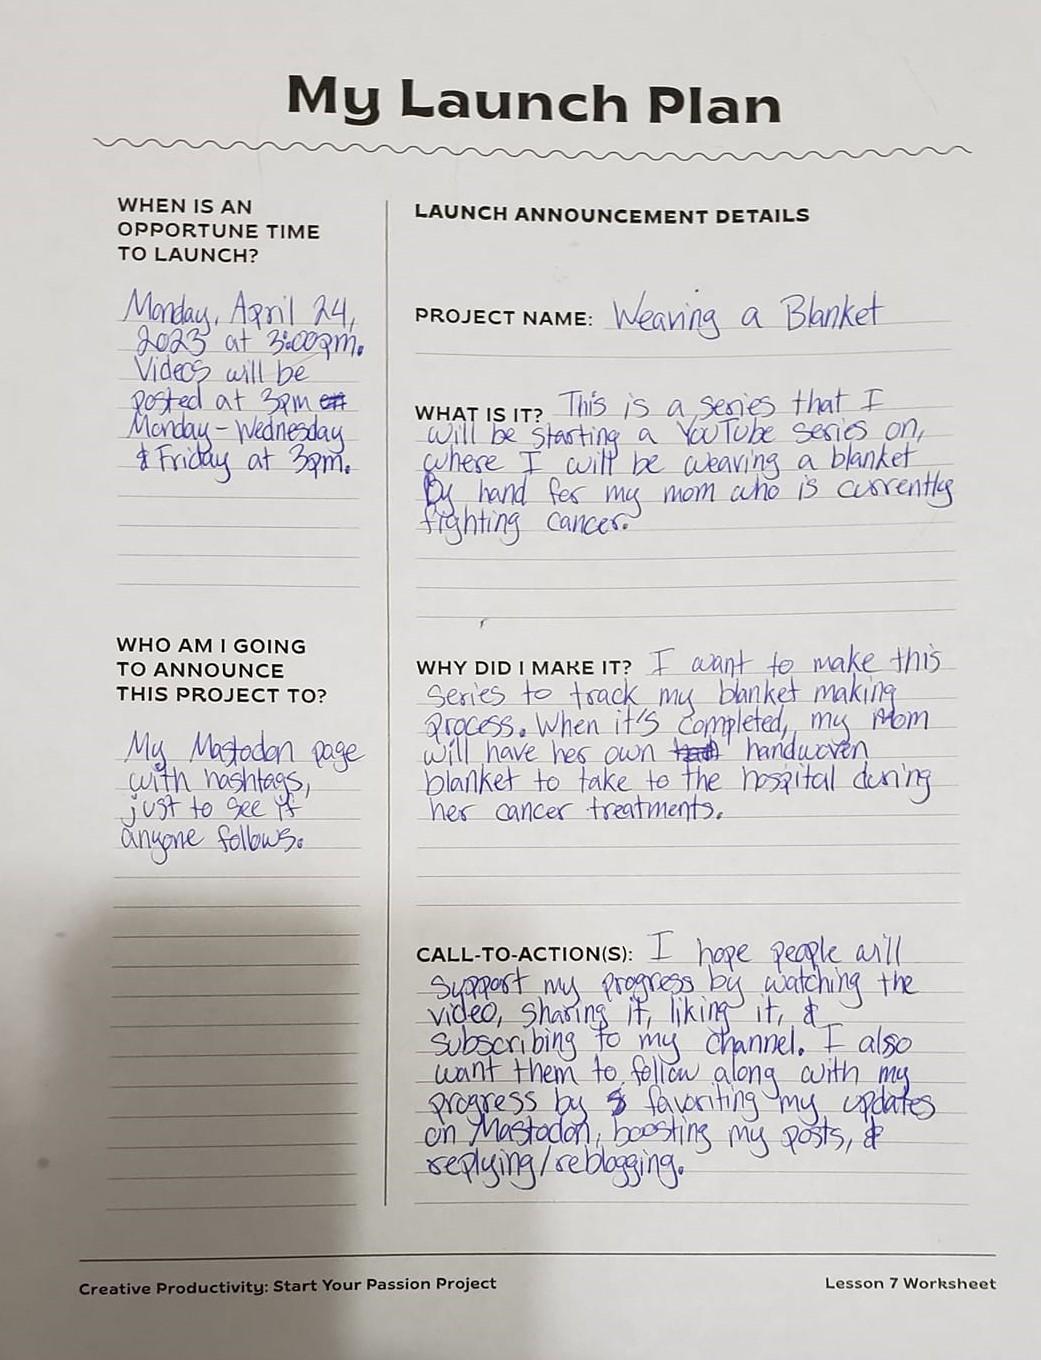 My Launch Plan
WHEN IS AN
OPPORTUNE TIME
TO LAUNCH?
Monday, April 24,
2023 at 3:00pm.
Videos will be
posted at 3pm
Monday-Wednesday
& Friday at 3pm.
WHO AM I GOING
TO ANNOUNCE
THIS PROJECT TO?
My Mastodon page
with hashtags,
just to see if
anyone follows.
LAUNCH ANNOUNCEMENT DETAILS
PROJECT NAME: Weaving a Blanket
WHAT IS IT? This is a series that I
will be starting a YouTube series on,
where I will be weaving a blanket
By hand for my mom who is currently
fighting cancer.
WHY DID I MAKE IT? I want to make this
series to track my blanket making
process. When it's completed, my Mom
will have her own handwoven
blanket to take to the hospital during
her cancer treatments.
CALL-TO-ACTION(S): I hope people will
support my progress by watching the
video, sharing it, liking it, &
subscribing to my channel. I also
want them to follow along with my
progress by favoriting my updates
on Mastodon, boosting my posts, &
replying/reblogging.
Creative Productivity: Start Your Passion Project
Lesson 7 Worksheet